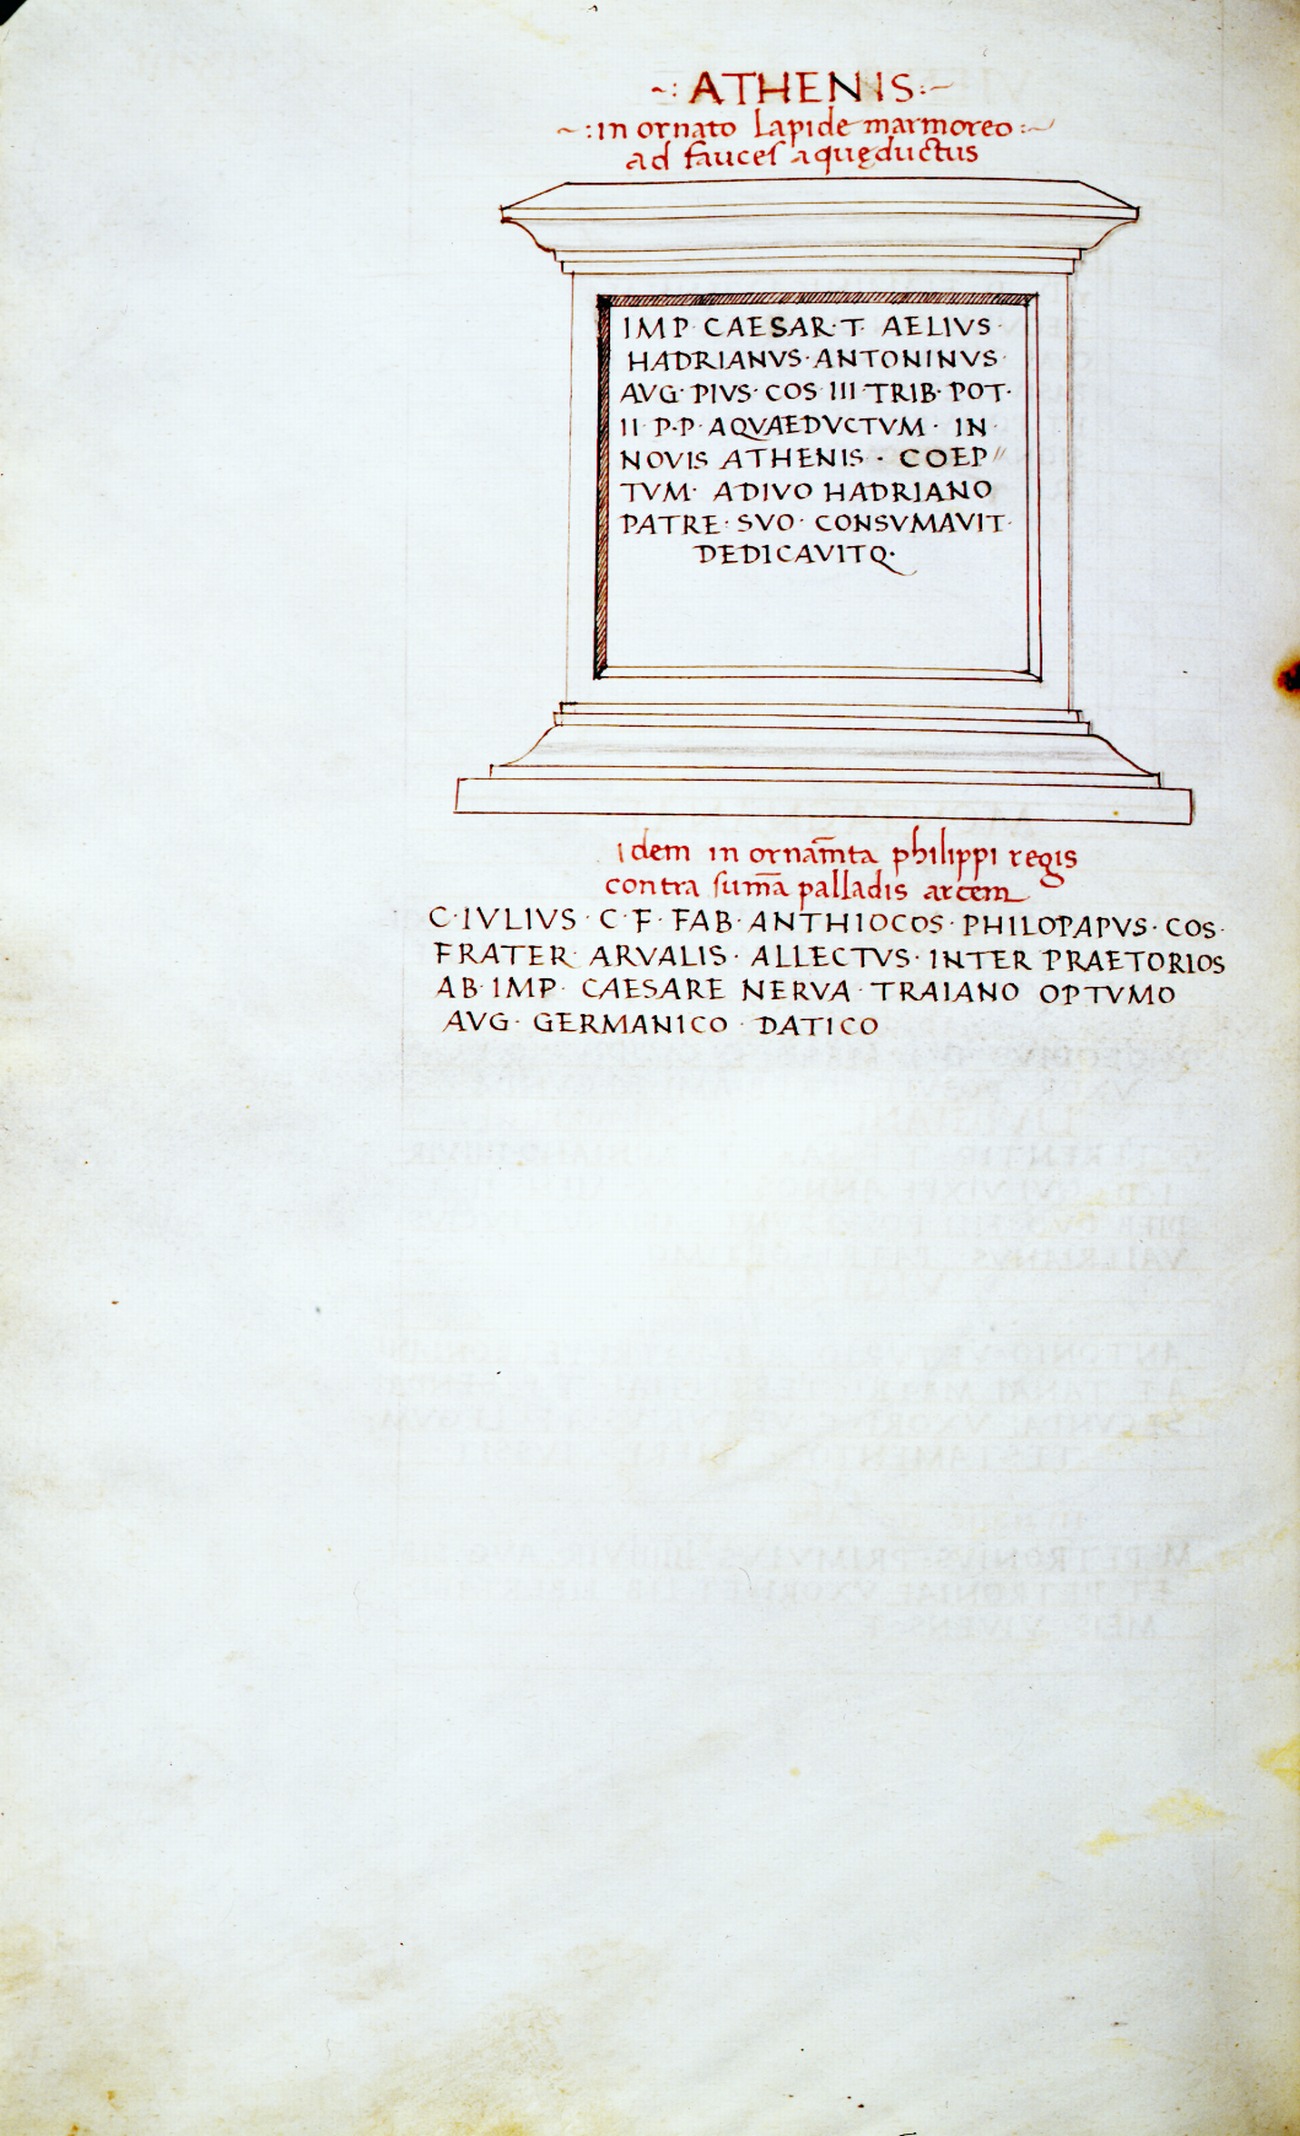 ~: ATHENIS :~
~: in ornato lapide marmoreo :~
ad fauceſ aquęductus
IMP· CAESAR·T· AELIVS·
HADRIANVS·ANTONINVS·
AVG·PIVS·COS·III·TRIB·POT·
II·P·P·AQVAEDVCTVM· IN·
NOVIS ATHENIS · COEP//
TVM· ADIVO HADRIANO
PATRE·SVO·CONSVMAVIT·
DEDICAVITQ·
idem in ornam̅ta philippi regis
contra ſum̅a palladis arcem
C·IVLIVS·C·F·FAB·ANTHIOCOS·PHILOPAPVS·COS·
FRATER· ARVALIS· ALLECTVS·INTER PRAETORIOS
AB·IMP· CAESARE NERVA·TRAIANO OPTVMO
AVG· GERMANICO · DATICO